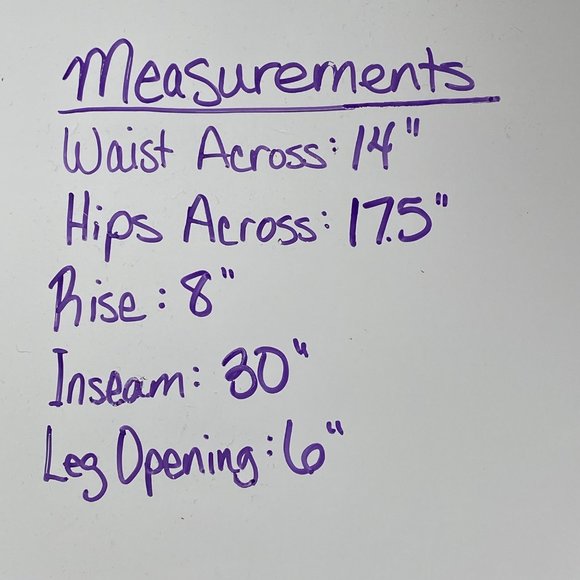 Measurements
Waist Across: 14"
Hips Across: 17.5"
Rise: 8"
Inseam: 30"
Leg Opening: 6"